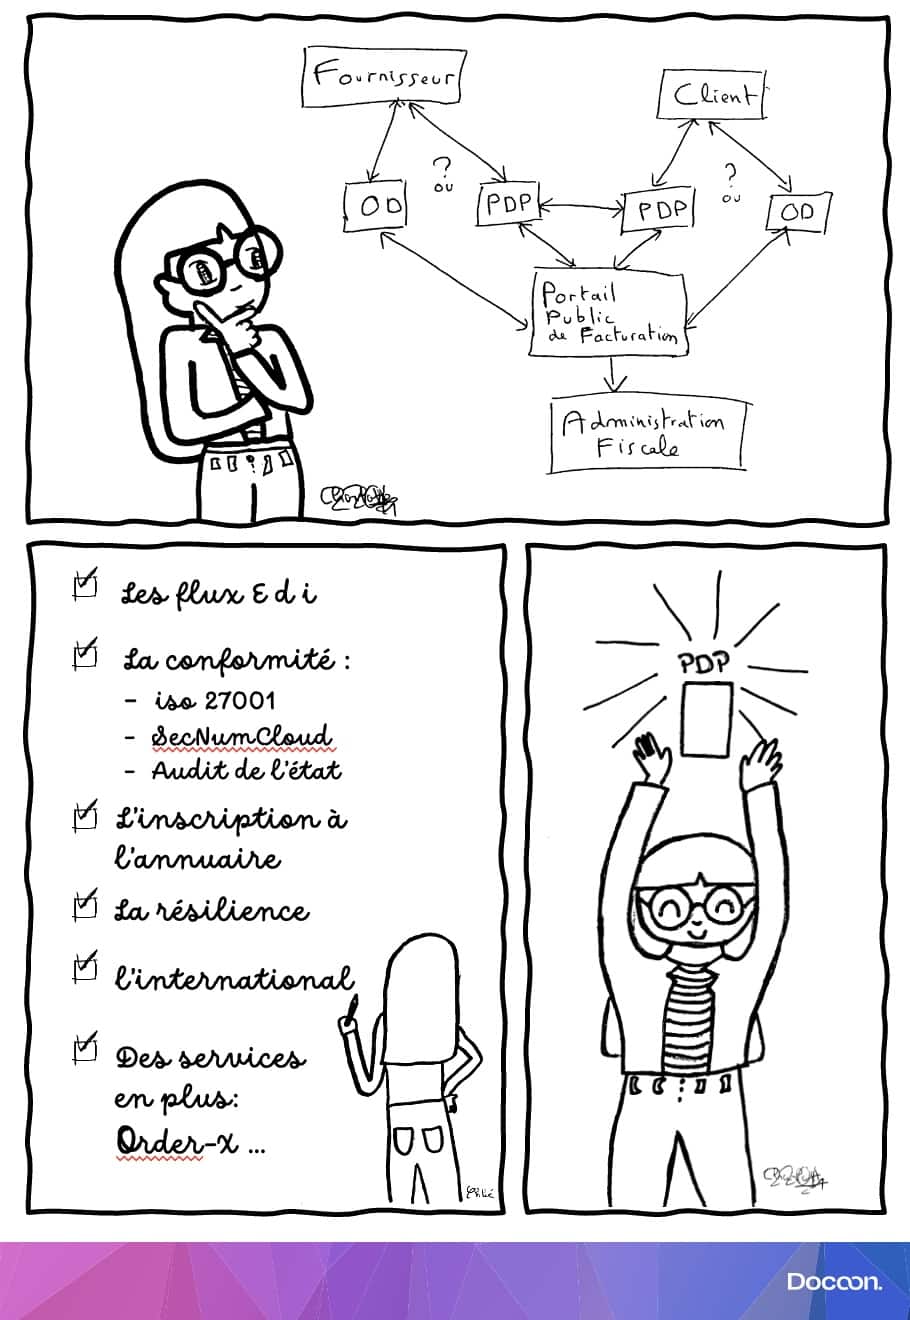 Fournisseur
Client
?
ou
?
ou
OD
PDP
PDP
OD
Portail
Public
de Facturation
Administration
Fiscale
Les flux E d i
La conformité :
- iso 27001
- SecNumCloud
- Audit de l'état
L'inscription à
l'annuaire
La résilience
l'international
Des services
en plus:
Order-x ...
PDP
Docoon.